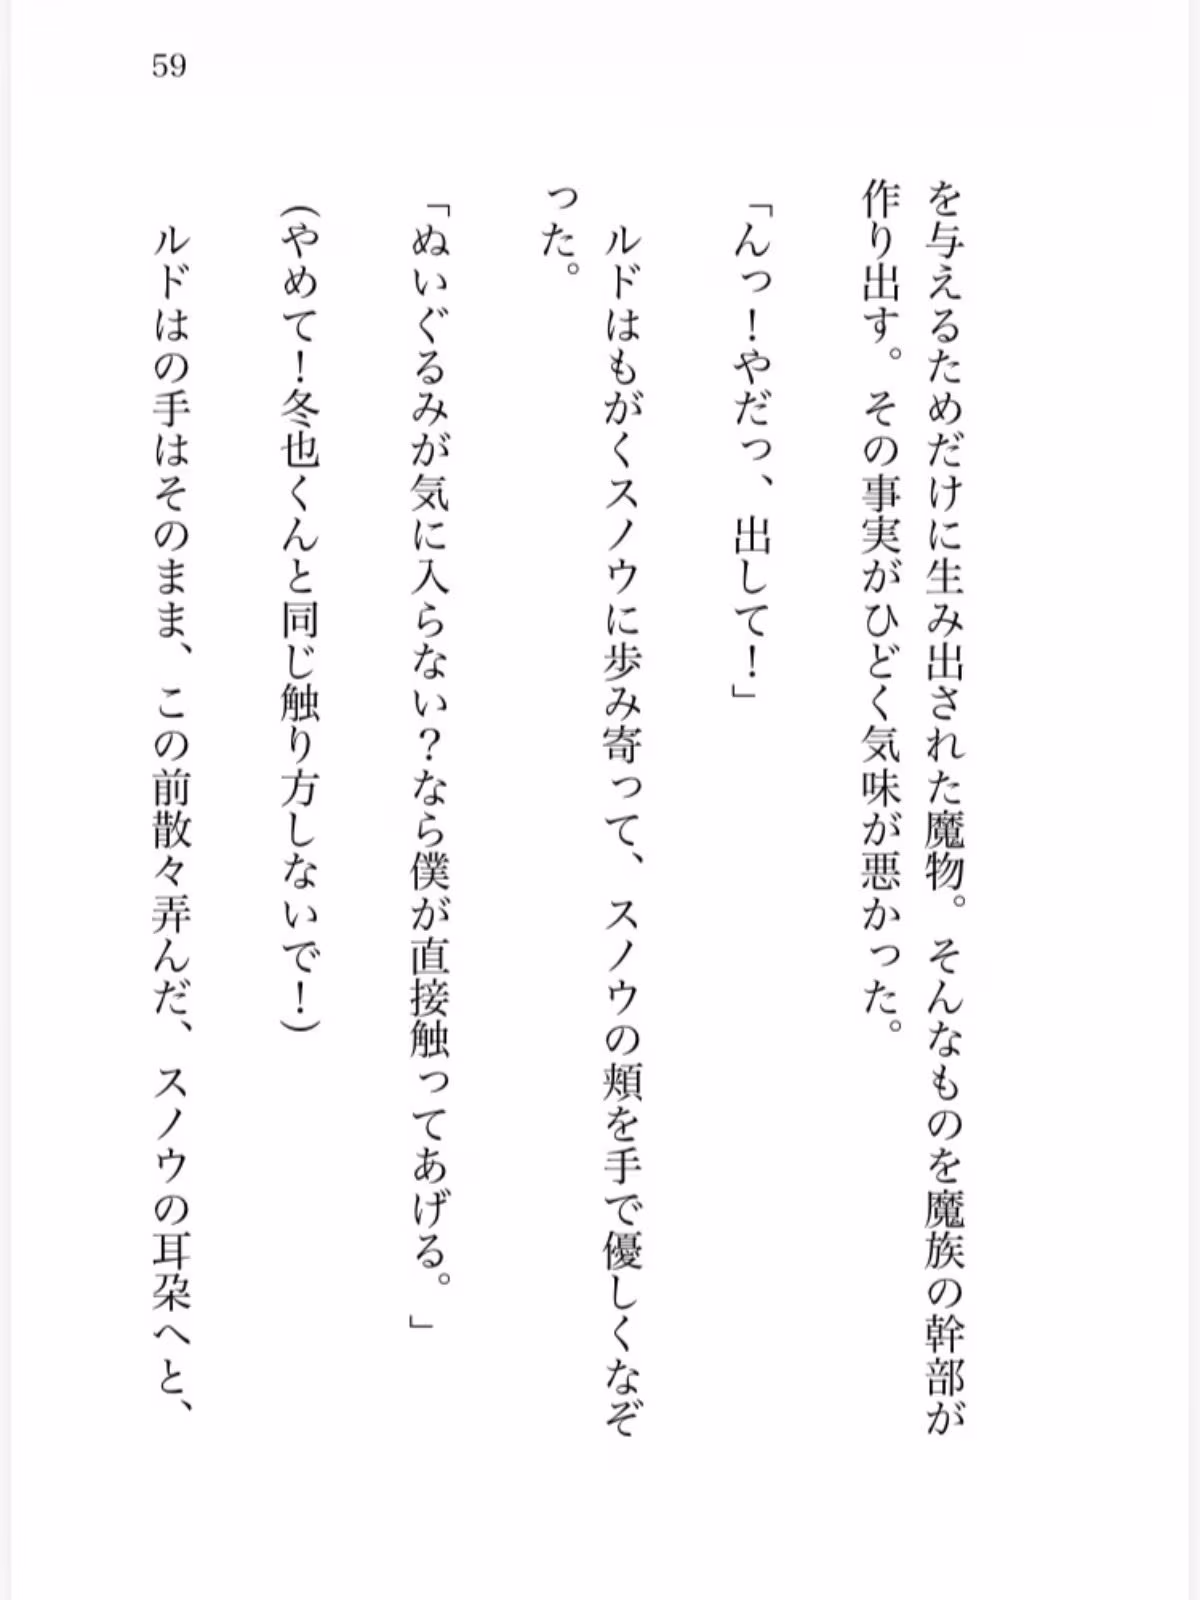 59
を与えるためだけに生み出された魔物。そんなものを魔族の幹部が
作り出す。その事実がひどく気味が悪かった。
「んっ！やだっ、出して！」
ルドはもがくスノウに歩み寄って、スノウの頬を手で優しくなぞ
った。
「ぬいぐるみが気に入らない？なら僕が直接触ってあげる。」
(やめて！冬也くんと同じ触り方しないで！)
ルドはの手はそのまま、この前散々弄んだ、スノウの耳朶へと、